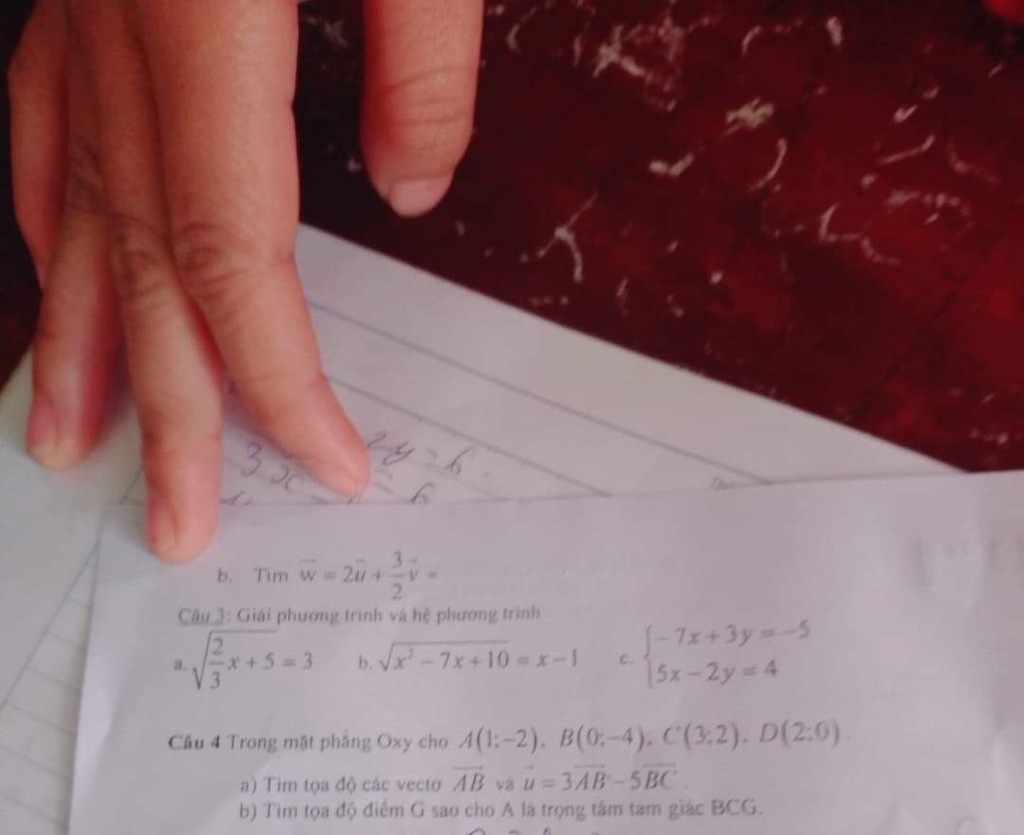 2y = 6
3x
6
b. Tìm w⃗ = 2u⃗ + 3/2 v⃗ =
Câu 3: Giải phương trình và hệ phương trình
a. √(2/3 x + 5) = 3 b. √(x² − 7x + 10) = x − 1 c. { −7x + 3y = −5
5x − 2y = 4
Câu 4 Trong mặt phẳng Oxy cho A(1;−2), B(0;−4), C(3;2), D(2;0).
a) Tìm tọa độ các vectơ AB⃗ và u⃗ = 3AB⃗ − 5BC⃗.
b) Tìm tọa độ điểm G sao cho A là trọng tâm tam giác BCG.